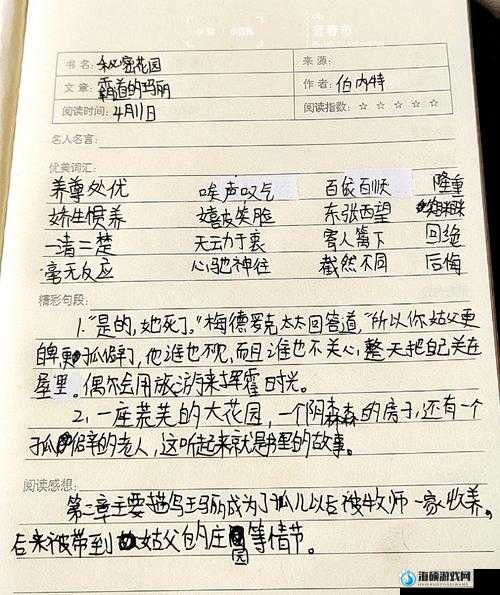 书名：秘密花园 来源：
文章：霸道的玛丽 作者：伯内特
阅读时间：4月11日 阅读指数：☆☆☆☆☆
名人名言：
优美词汇：
养尊处优 唉声叹气 百依百顺 隆重
娇生惯养 嬉皮笑脸 东张西望
一清二楚 无动于衷 寄人篱下 回绝
毫无反应 心驰神往 截然不同 后悔
精彩句段：
1."是的，她死了。"梅德罗克太太回答道，"所以你姑父更
孤僻了，他谁也不见，而且谁也不关心，整天把自己关在
屋里。偶尔会用旅游来挥霍时光。
2，一座荒芜的大花园，一个阴森森的房子，还有一个
孤僻的老人，这听起来就是书里的故事。
阅读感想：
第二章主要描写玛丽成为了孤儿以后被牧师一家收养，
后来被带到姑父的庄园等情节。
海硕游戏网